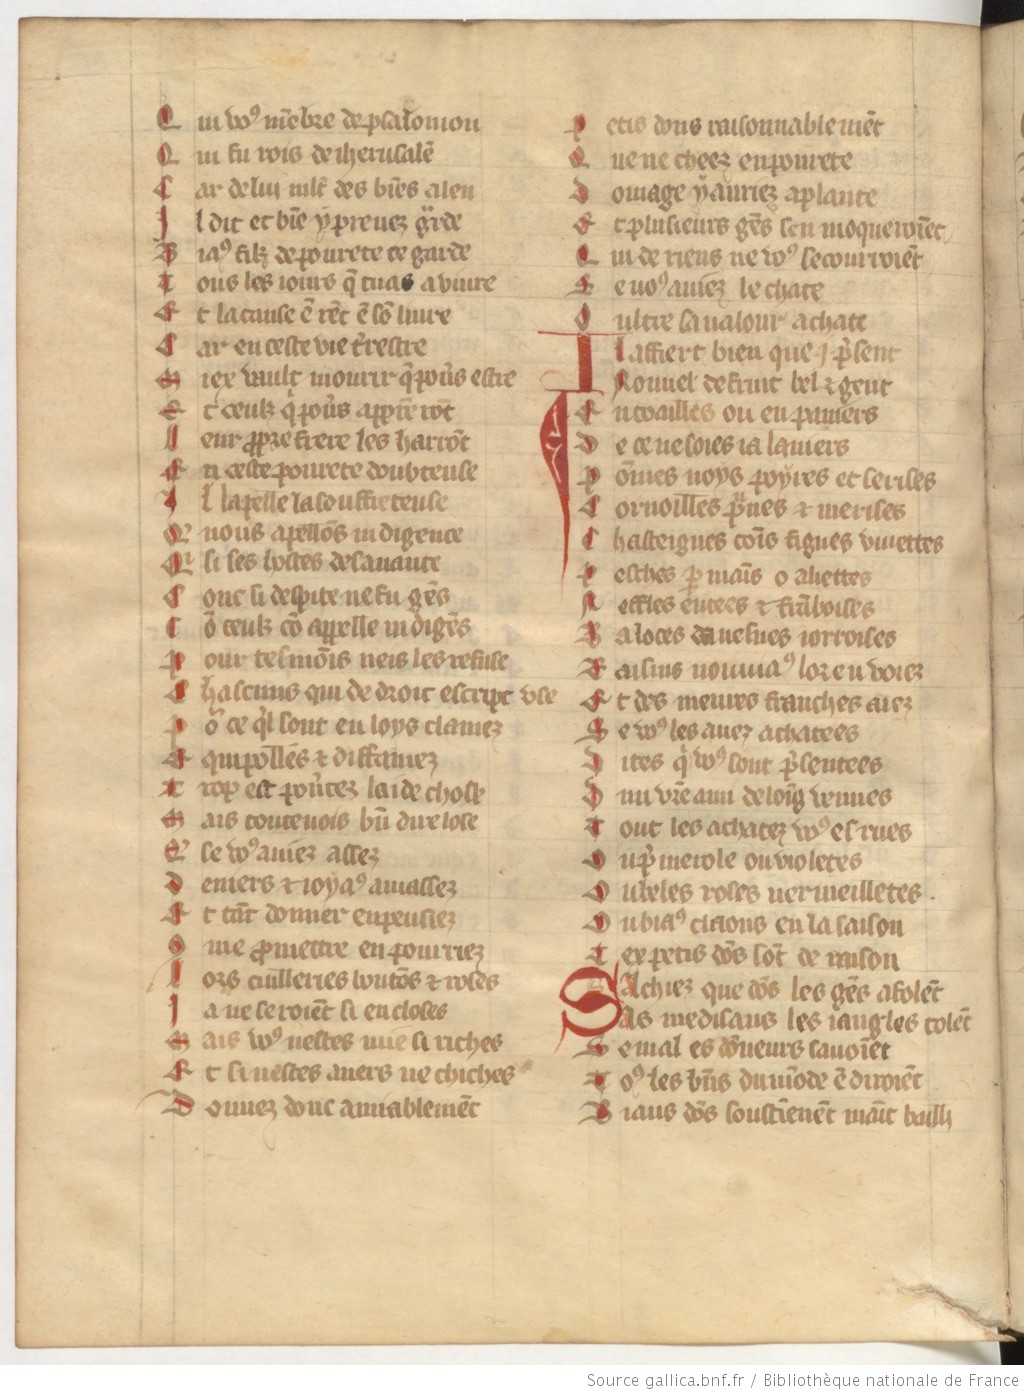 Qui vo9 me̅bre de psalomon
Qui fu rois de iherusale̅
Car de lui mlt̅ des bie̅s a len
Il dit et bie̅ y prenez garde
Bia9 filz de pourete te garde
Tous les iours q̅ tu as a viure
Et la cause e̅ re̅t e̅ so̅ liure
Car en ceste vie t̓restre
Miex vault mourir q̅ pou̓s estre
Et ceulx q̓ pou̓s apptre ro̅t
Leur propre frere les harro̅t
En ceste pourete doubteuse
Il lapelle la souffreteuse
Que nous apello̅s indigence
Qui si ses hostes desauance
Conc si despite ne fu ge̅s
Co̅ ceulx co̅ appelle indige̅s
Pour tesmo̅is neis les refuse
Chascuns qui de droit escript vse
Po̅r ce q̓l sont en loys clamez
Equipolle̅s & diffamez
Trop est pou̓tez laide chose
Mais toutenois bn̅ dire lose
Que se vo9 auiez assez
Deniers & ioya9 amassez
Et ta̅t donner en peusiez
Que promettre en pourriez
Lors cuilleries bouto̅s & roses
Ia ne seroie̅t si encloses
Mais vo9 nestes mie si riches
Et si nestes auers ne chiches
Donnez donc amiableme̅t
Petis dons raisonnableme̅t
Que ne cheez en pourete
Domage y auriez a plante
Et plusieurs ge̅s sen moqueroie̅t
Qui de riens ne vo9 secourroie̅t
Se vo9 auiez le chate
Oultre sa valour achate
Il affiert bien que i p̓sent
Nouuel de fruit bel & gent
En toailles ou en paniers
De ce ne soies ia laniers
Po̅mes noys poyres et serises
Cornoilles p̓nes & merises
Chasteignes coi̅s figues viuettes
Pesches parmai̅s o aliettes
Neffles entees & fra̅boises
Baloces dauesnes iorroises
Raisins nouuia9 lor enuoiez
Et des meures franches aiez
Se vo9 les auez achatees
Dites q̓ vo9 sont p̓sentees
Dun vr̅e ami de loi̅g venues
Tout les achatez vo9 es rues
Ou p̓meuole ou violetes
Ou beles roses vermeilletes
Ou bia9 claons en la saison
Tex petis do̅s so̅t de raison
Sachiez que do̅s les ge̅s afole̅t
As medisans les iangles tole̅t
Se mal es do̅neurs sauoie̅t
To9 les bn̅s du mo̅de e̅ diroie̅t
Biaus do̅s soustiene̅t mai̅t bailli